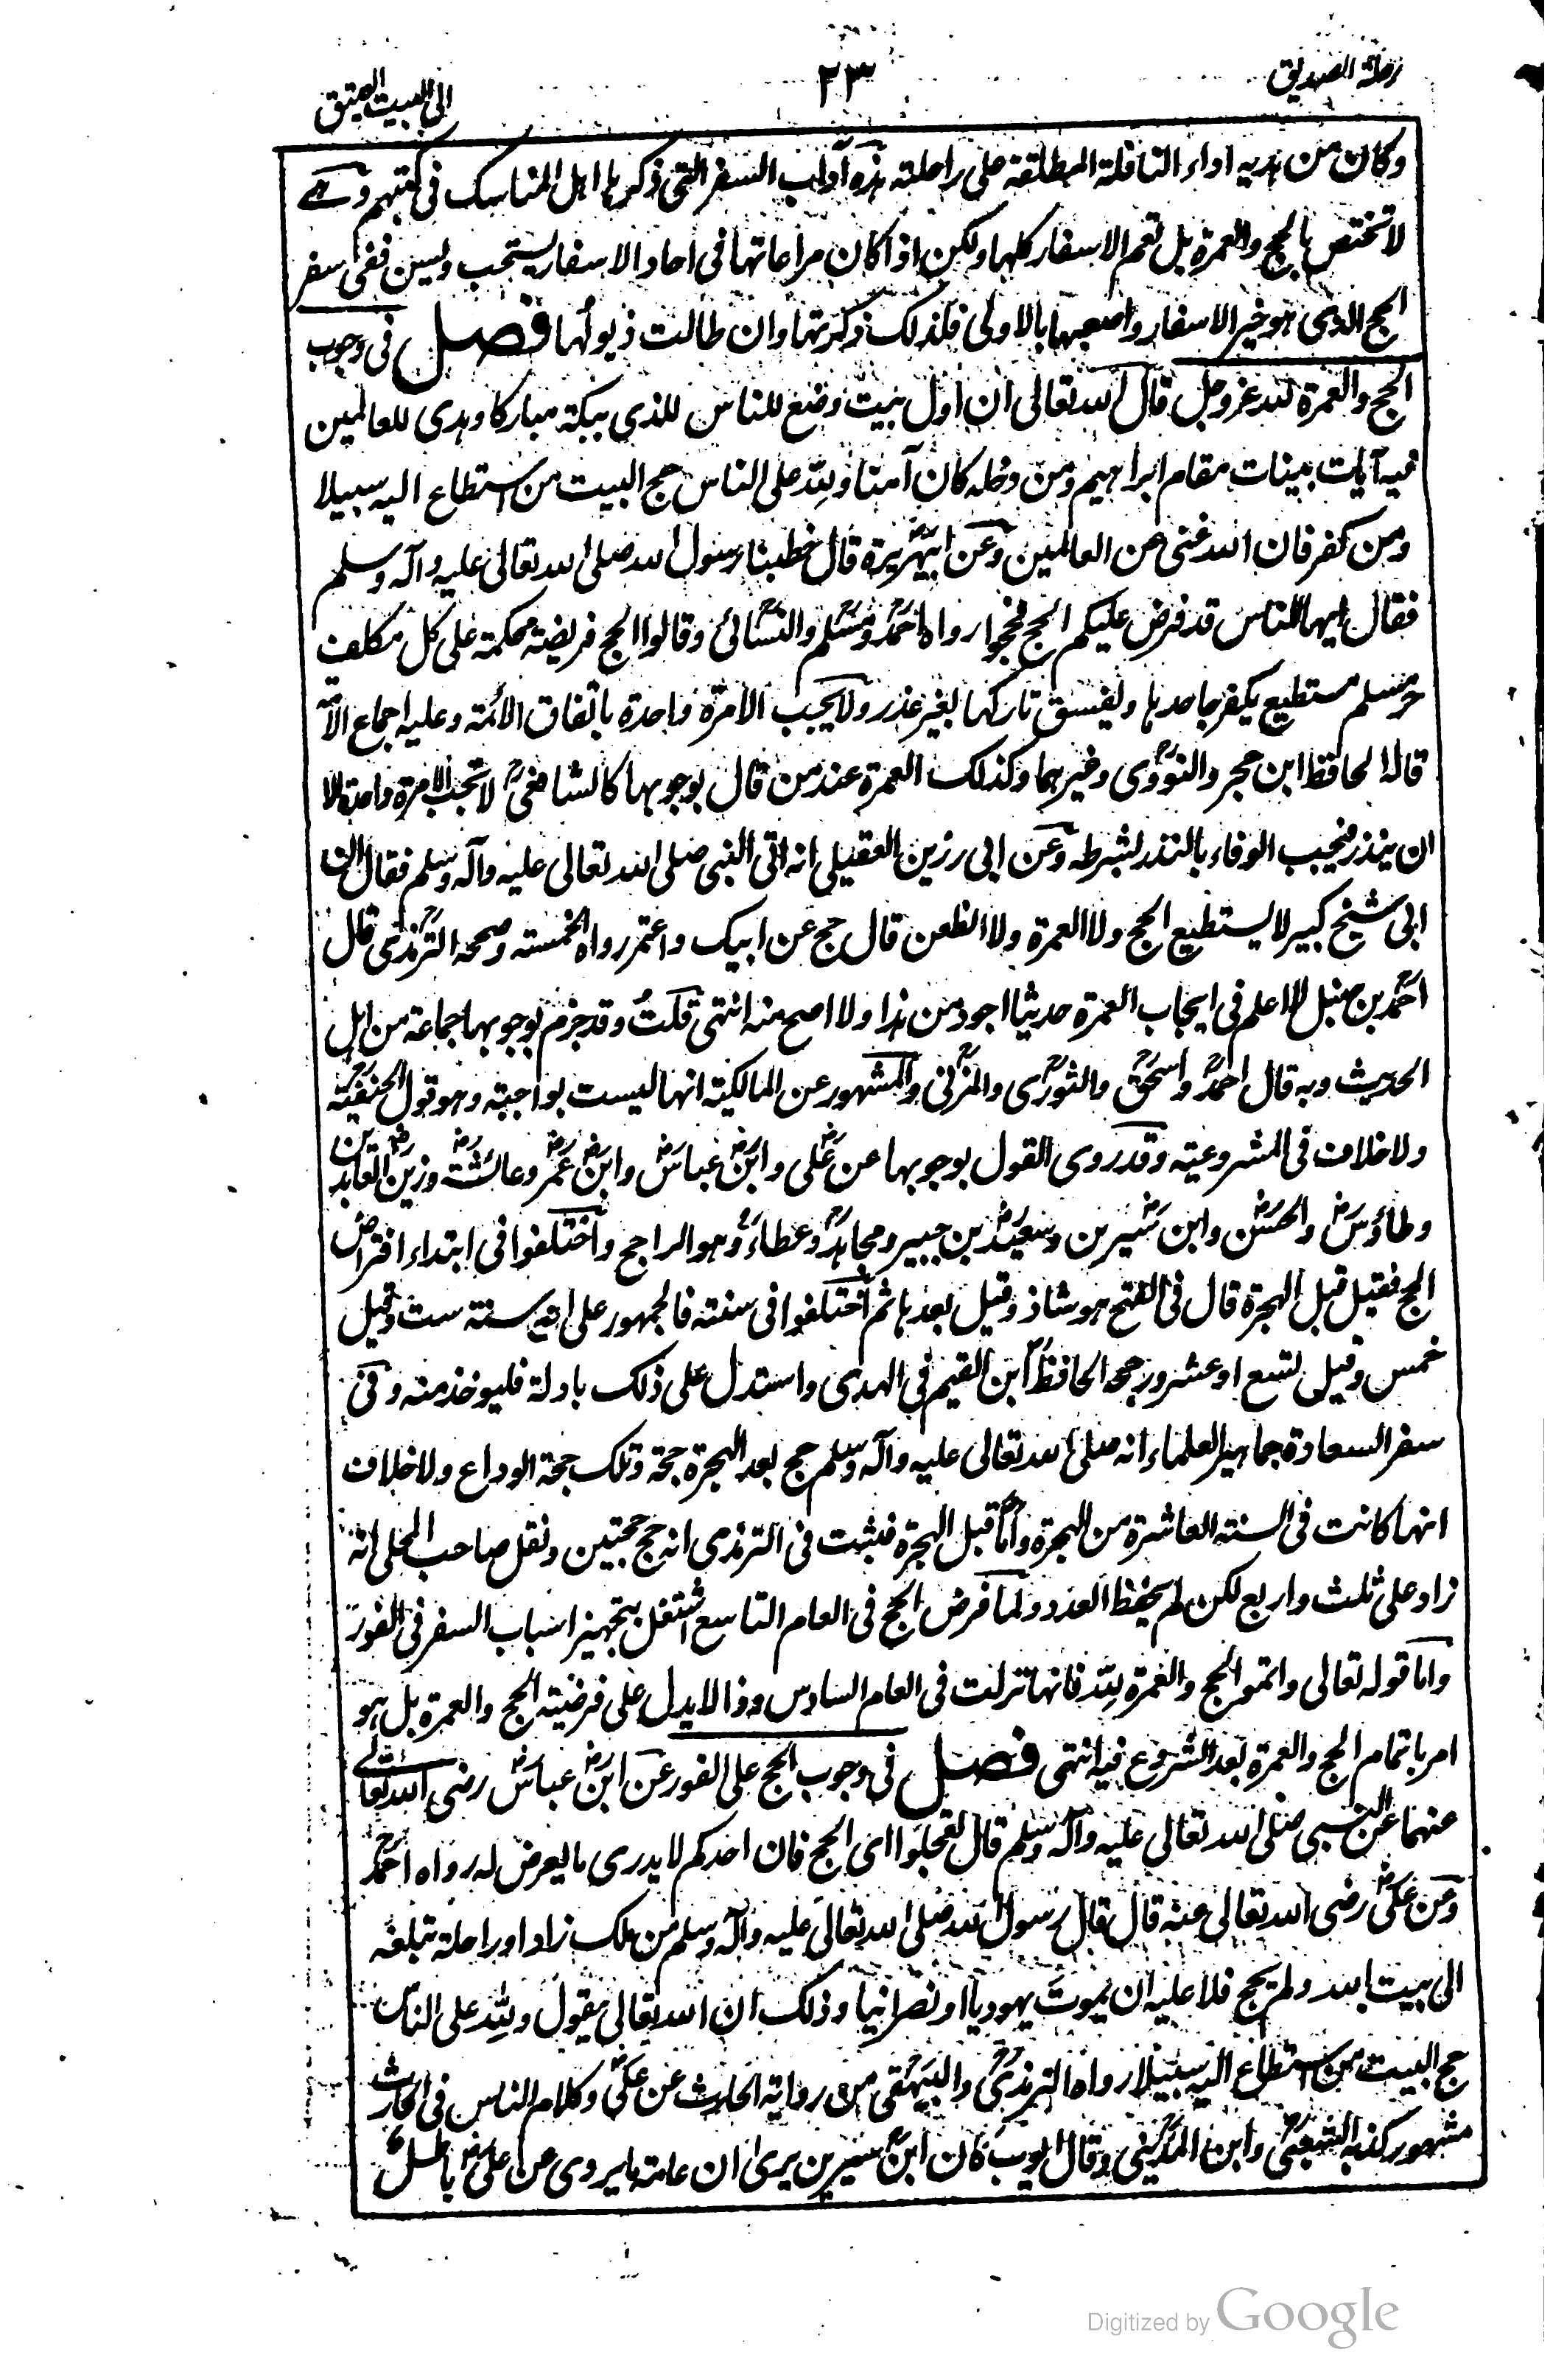 رحلة الصديق
٢٣
الى البيت العتيق
وكان من هديه اداء النافلة المطلقة على راحلته هذه آداب السفر التى ذكرها اهل المناسك فى كتبهم وهے
لا تختص بالحج والعمرة بل تعم الاسفار كلها ولكن اذا كان مراعاتها فى احاد الاسفار يستحب ويسن ففى سفر
الحج الذى هو خير الاسفار واصعبها بالاولى فلذلك ذكرتها وان طالت ذيولها فصل فى وجوب
الحج والعمرة لله عز وجل قال الله تعالى ان اول بيت وضع للناس للذى ببكة مباركا وهدى للعالمين
فيه آيات بينات مقام ابراهيم ومن دخله كان آمنا ولله على الناس حج البيت من استطاع اليه سبيلا
ومن كفر فان الله غنى عن العالمين وعن ابيهريرة قال خطبنا رسول الله صلى الله تعالى عليه وآله وسلم
فقال ايها الناس قد فرض عليكم الحج فحجوا رواه احمد ومسلم والنسائى وقالوا الحج فريضة محكمة على كل مكلف
حر مسلم مستطيع يكفر جاحدها ويفسق تاركها بغير عذر ولا يجب الا مرة واحدة باتفاق الائمة وعليه اجماع الامة
قاله الحافظ ابن حجر والنووى وغيرهما وكذلك العمرة عند من قال بوجوبها كالشافعى لا تجب الا مرة واحدة الا
ان ينذر فيجب الوفاء بالنذر بشرطه وعن ابى رزين العقيلى انه اتى النبى صلى الله تعالى عليه وآله وسلم فقال ان
ابى شيخ كبير لا يستطيع الحج ولا العمرة ولا الظعن قال حج عن ابيك واعتمر رواه الخمسة وصححه الترمذى قال
احمد بن حنبل لا اعلم فى ايجاب العمرة حديثا اجود من هذا ولا اصح منه انتهى قلت وقد جزم بوجوبها جماعة من اهل
الحديث وبه قال احمد واسحق والثورى والمزنى والمشهور عن المالكية انها ليست بواجبة وهو قول الحنفية
ولا خلاف فى المشروعية وقد روى القول بوجوبها عن على وابن عباس وابن عمر وعائشة وزين العابدين
وطاؤس والحسن وابن سيرين وسعيد بن جبير ومجاهد وعطاء وهو الراجح واختلفوا فى ابتداء افتراض
الحج فقيل قبل الهجرة قال فى الفتح هو شاذ وقيل بعدها ثم اختلفوا فى سنته فالجمهور على انه سنة ست وقيل
خمس وقيل تسع او عشر ورجحه الحافظ ابن القيم فى الهدى واستدل على ذلك بادلة فليوخذ منه وفى
سفر السعادة جماهير العلماء انه صلى الله تعالى عليه وآله وسلم حج بعد الهجرة حجة وتلك حجة الوداع ولا خلاف
انها كانت فى السنة العاشرة من الهجرة واما قبل الهجرة فثبت فى الترمذى انه حج حجتين ونقل صاحب المحلى انه
زاد على ثلث واربع لكن لم يحفظ العدد ولما فرض الحج فى العام التاسع اشتغل بتجهيز اسباب السفر فى الفور
واما قوله تعالى واتموا الحج والعمرة لله فانها نزلت فى العام السادس وذا لا يدل على فرضية الحج والعمرة بل هو
امر باتمام الحج والعمرة بعد الشروع فيه انتهى فصل فى وجوب الحج على الفور عن ابن عباس رضى الله تعالى
عنهما عن النبى صلى الله تعالى عليه وآله وسلم قال تعجلوا الى الحج فان احدكم لا يدرى ما يعرض له رواه احمد
وعن على رضى الله تعالى عنه قال قال رسول الله صلى الله تعالى عليه وآله وسلم من ملك زادا وراحلة تبلغه
الى بيت الله ولم يحج فلا عليه ان يموت يهوديا او نصرانيا وذلك ان الله تعالى يقول ولله على الناس
حج البيت من استطاع اليه سبيلا رواه الترمذى والبيهقى من رواية الحارث عن على وكلام الناس فى الحارث
مشهور كذبه الشعبى وابن المدينى وقال ايوب كان ابن سيرين يرى ان عامة ما يروى عن على باطل
Digitized by Google